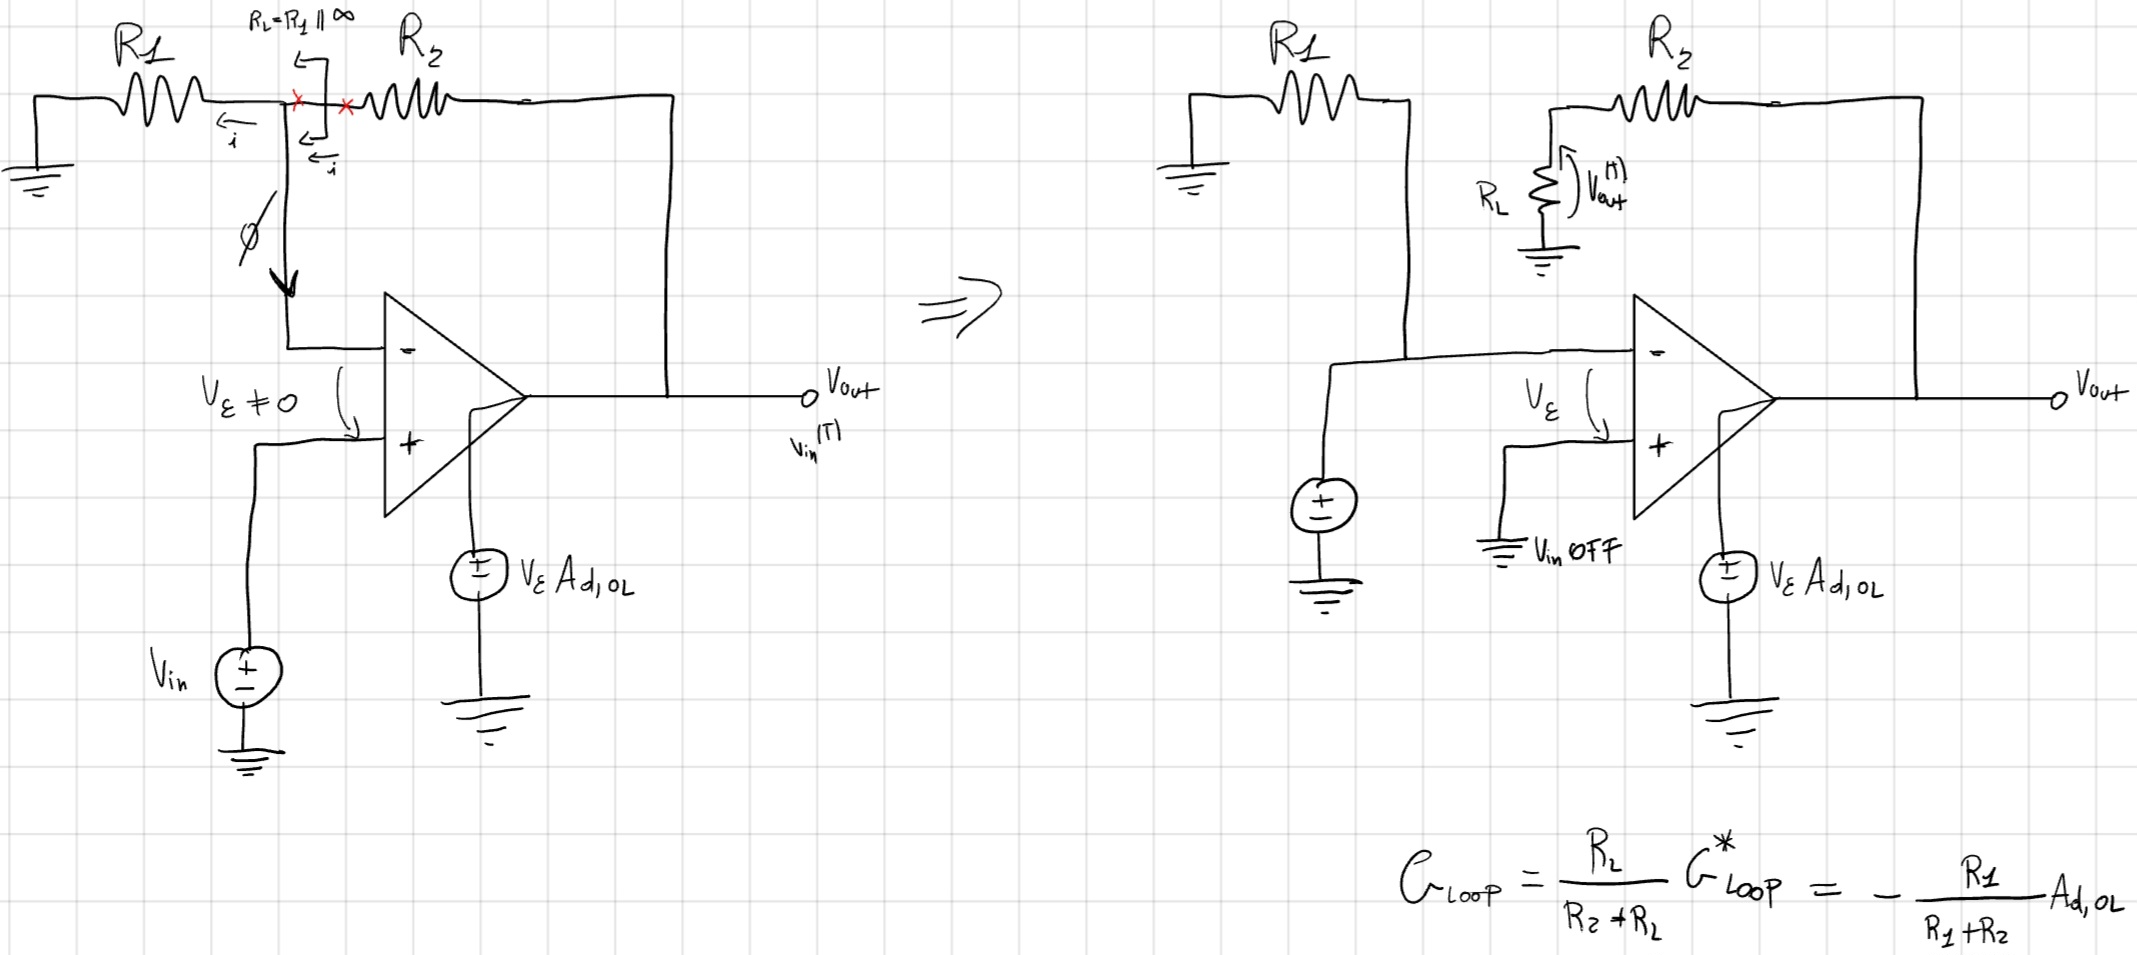 R_L=R1 || ∞
R1
R₂
i
i
∅
-
V_ε ≠ 0
+
Vout
Vin^(T)
±
V_ε Ad,OL
Vin
+
-
⇒
R1
R₂
R_L
Vout^(T)
-
V_ε
+
Vout
±
Vin OFF
±
V_ε Ad,OL
G_LOOP = R_L / (R₂ + R_L) G*_LOOP = - R1 / (R1 + R2) Ad,OL